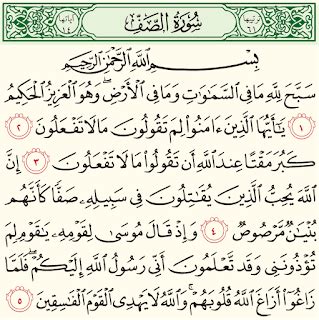 ترتيبها ٦١ سُورَةُ الصَّفِّ آياتها ١٤
بِسْمِ اللَّهِ الرَّحْمَٰنِ الرَّحِيمِ
سَبَّحَ لِلَّهِ مَا فِي السَّمَٰوَٰتِ وَمَا فِي الْأَرْضِ ۖ وَهُوَ الْعَزِيزُ الْحَكِيمُ
١ يَٰٓأَيُّهَا الَّذِينَ ءَامَنُوا۟ لِمَ تَقُولُونَ مَا لَا تَفْعَلُونَ ٢
كَبُرَ مَقْتًا عِندَ اللَّهِ أَن تَقُولُوا۟ مَا لَا تَفْعَلُونَ ٣ إِنَّ
اللَّهَ يُحِبُّ الَّذِينَ يُقَٰتِلُونَ فِي سَبِيلِهِۦ صَفًّا كَأَنَّهُم
بُنْيَٰنٌ مَّرْصُوصٌ ٤ وَإِذْ قَالَ مُوسَىٰ لِقَوْمِهِۦ يَٰقَوْمِ لِمَ
تُؤْذُونَنِي وَقَد تَّعْلَمُونَ أَنِّي رَسُولُ اللَّهِ إِلَيْكُمْ ۖ فَلَمَّا
زَاغُوٓا۟ أَزَاغَ اللَّهُ قُلُوبَهُمْ ۚ وَاللَّهُ لَا يَهْدِي الْقَوْمَ الْفَٰسِقِينَ ٥